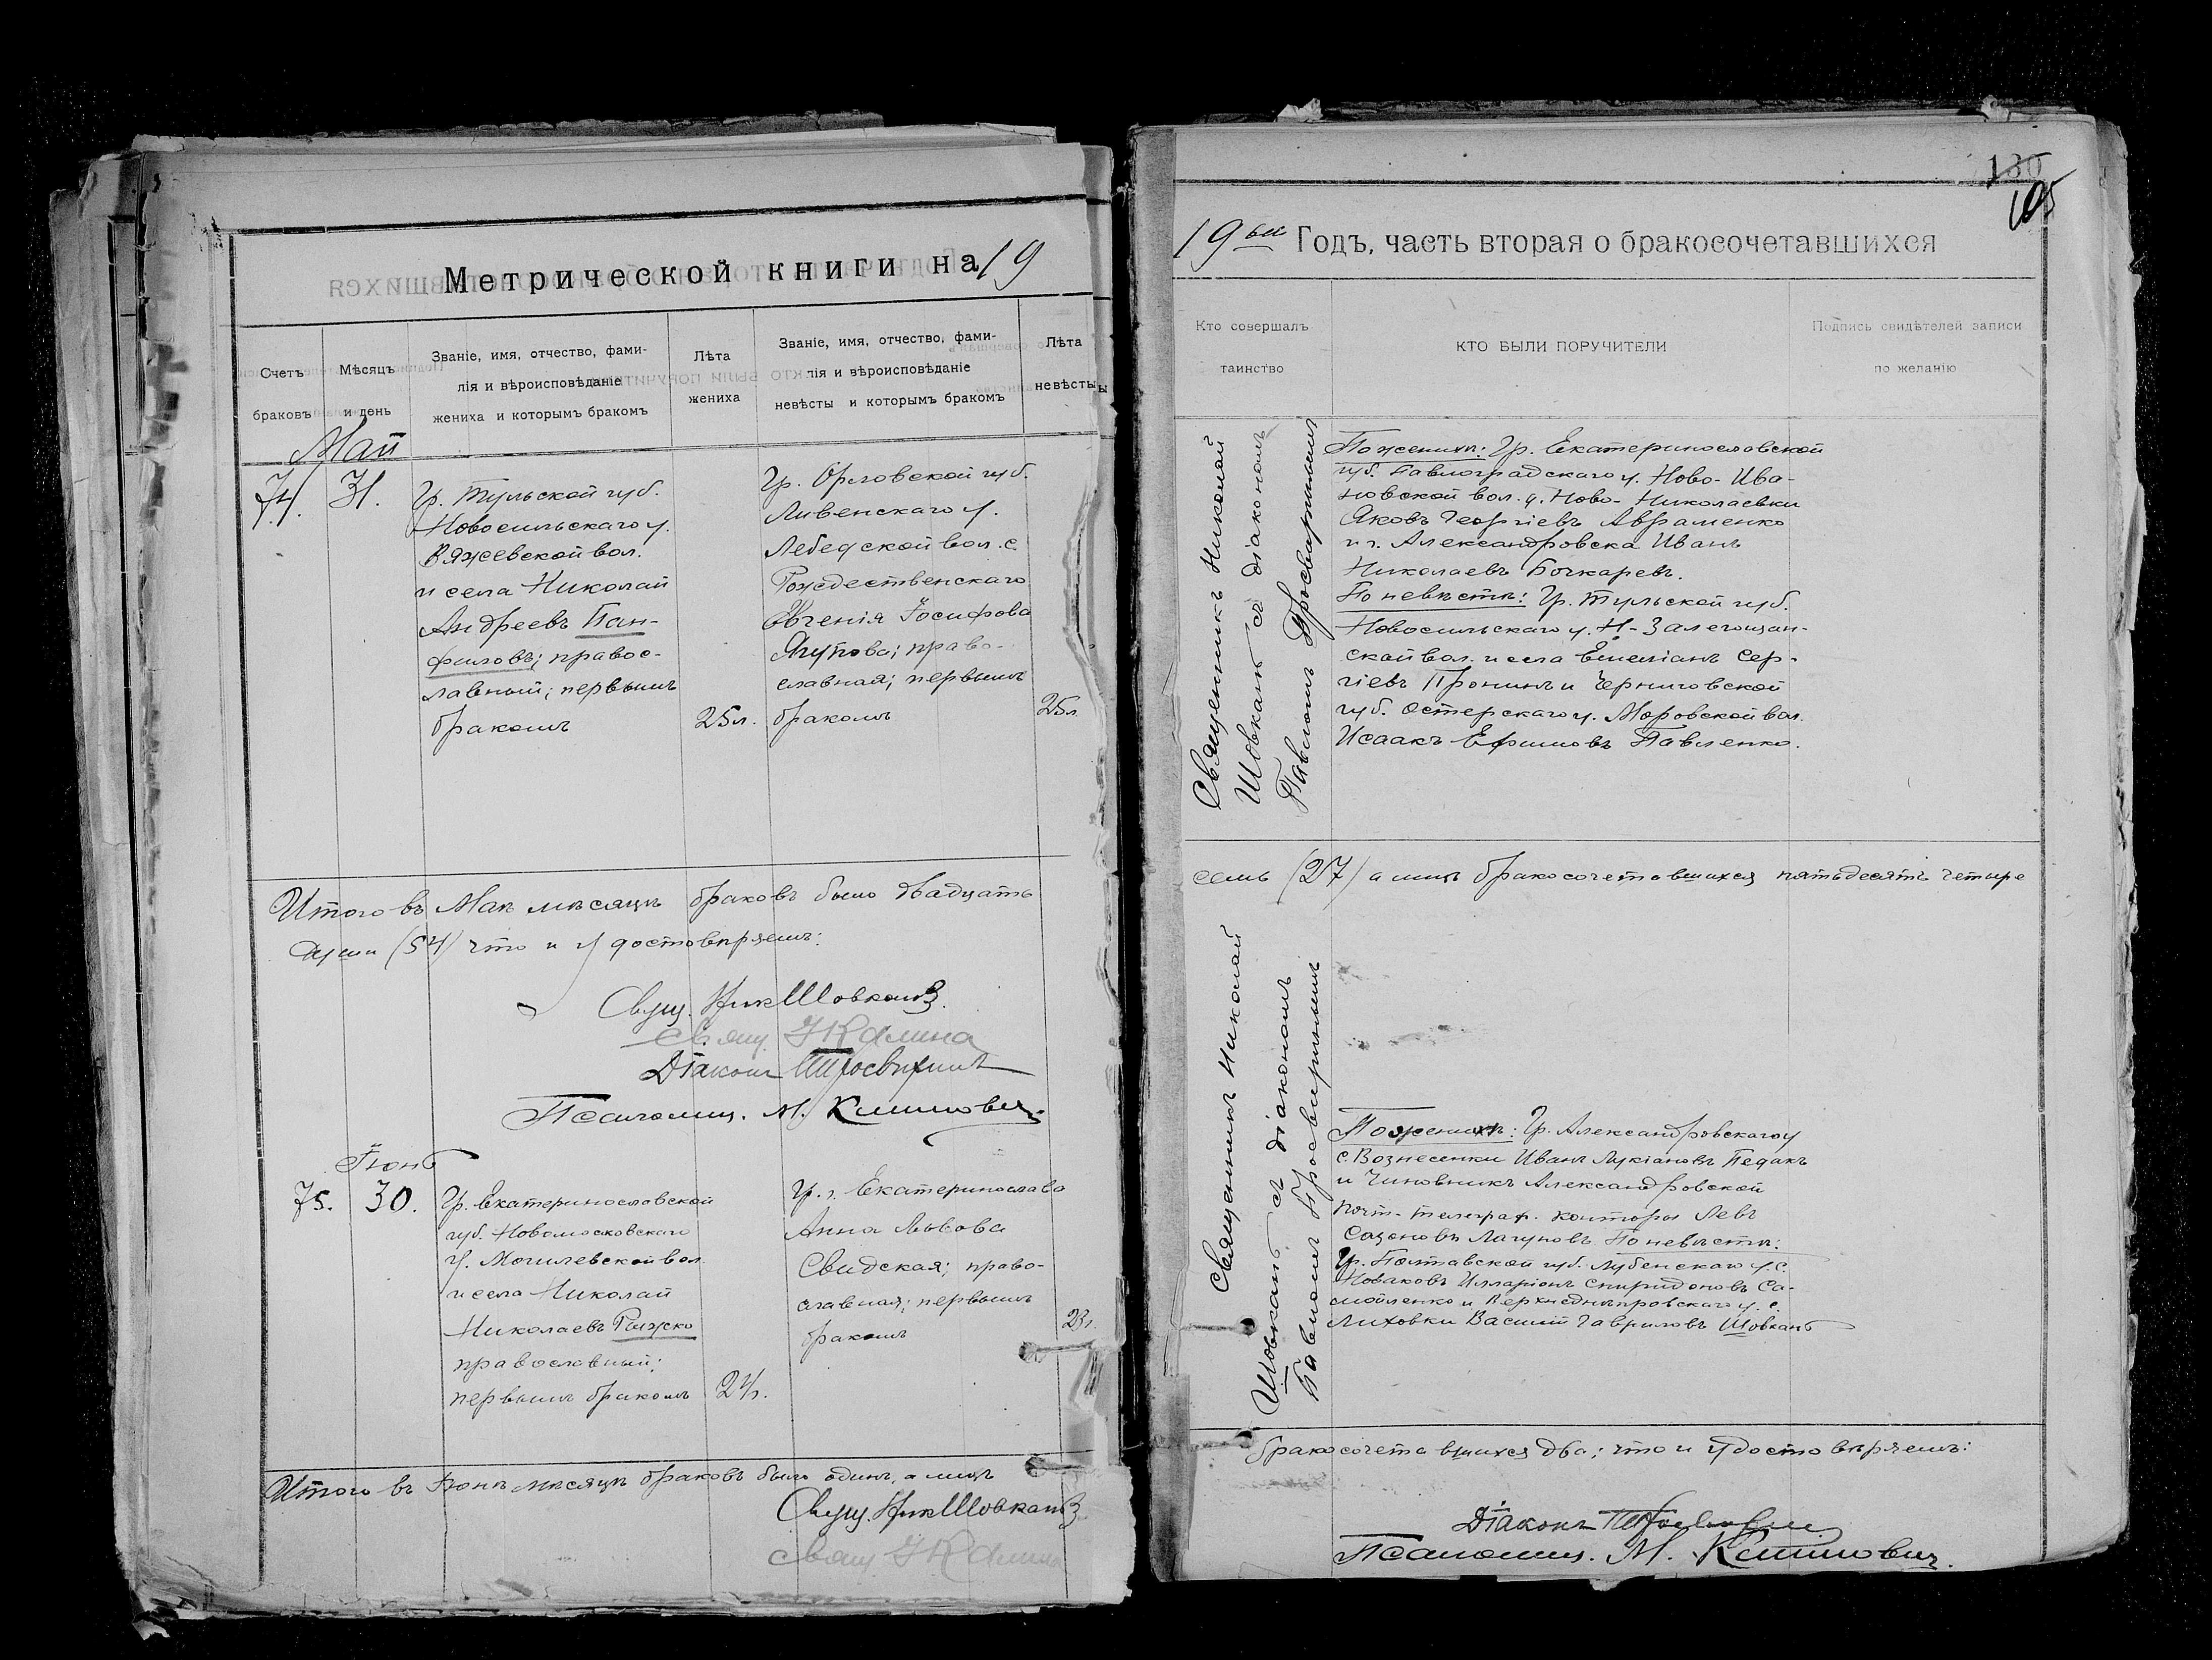 Метрической книги на 19
Счетъ браковъ
Мѣсяцъ и день
Званіе, имя, отчество, фами-
лія и вѣроисповѣданіе
жениха и которымъ бракомъ
Лѣта
жениха
Званіе, имя, отчество, фами-
лія и вѣроисповѣданіе
невѣсты и которымъ бракомъ
Лѣта
невѣсты
Май
74. 31.
Гр. Тульской губ.
Новосильскаго у.
Вяжевской вол.
и села Николай
Андреевъ Пан-
филовъ; правос-
лавный; первымъ
бракомъ
25 л.
Гр. Орловской губ.
Ливенскаго у.
Лебедской вол. с.
Рождественскаго
Евгенія Іосифова
Ягупова; право-
славная; первымъ
бракомъ
25 л.
Итого въ Маѣ мѣсяцѣ браковъ было двадцать
души (54) что и удостовѣряемъ:
Свящ. Ник Шовкань
Свящ. Калина
Діаконъ Просвиринъ
Псаломщ. М. Климовичъ
Іюнь
75. 30.
Гр. Екатеринославской
губ. Новомосковскаго
у. Могилевской вол.
и села Николай
Николаевъ Рыжко
православный;
первымъ бракомъ
24 л.
Гр. г. Екатеринослава
Анна Львова
Свидская; право-
славная; первымъ
бракомъ
23 г.
Итого въ Іюнѣ мѣсяцѣ браковъ было одинъ, а лицъ
Свящ. Ник Шовкань
Свящ. Калина
130
105
19 ый Годъ, часть вторая о бракосочетавшихся
Кто совершалъ
таинство
КТО БЫЛИ ПОРУЧИТЕЛИ
Подпись свидѣтелей записи
по желанію
Священникъ Николай
Шовкань съ діакономъ
Павломъ Просвиринымъ
По женихѣ: Гр. Екатеринославской
губ. Павлоградскаго у. Ново-Ива-
новской вол. д. Ново-Николаевки
Яковъ Георгіевъ Авраменко
и г. Александровска Иванъ
Николаевъ Бочкаревъ.
По невѣстѣ: Гр. Тульской губ.
Новосильскаго у. Н-Залегощан-
ской вол. и села Емеліанъ Сер-
гіевъ Пронинъ и Черниговской
губ. Остерскаго у. Моровской вол.
Исаакъ Ефимовъ Павленко.
семь (27) а лицъ бракосочетавшихся пятьдесятъ четыре
Священникъ Николай
Шовкань съ діакономъ
Павломъ Просвиринымъ
По женихѣ: Гр. Александровскаго у
с. Вознесенки Иванъ Лукіановъ Педакъ
и Чиновникъ Александровской
почт-телеграф. конторы Левъ
Сазоновъ Лагуновъ По невѣстѣ:
Гр. Полтавской губ. Лубенскаго у. с.
Новаковъ Илларіонъ Спиридоновъ Са-
мойленко и Верхнеднѣпровскаго у. с.
Лиховки Василій Гавриловъ Шовкань
бракосочетавшихся два; что и удостовѣряемъ:
Діаконъ Просвиринъ
Псаломщ. М. Климовичъ.